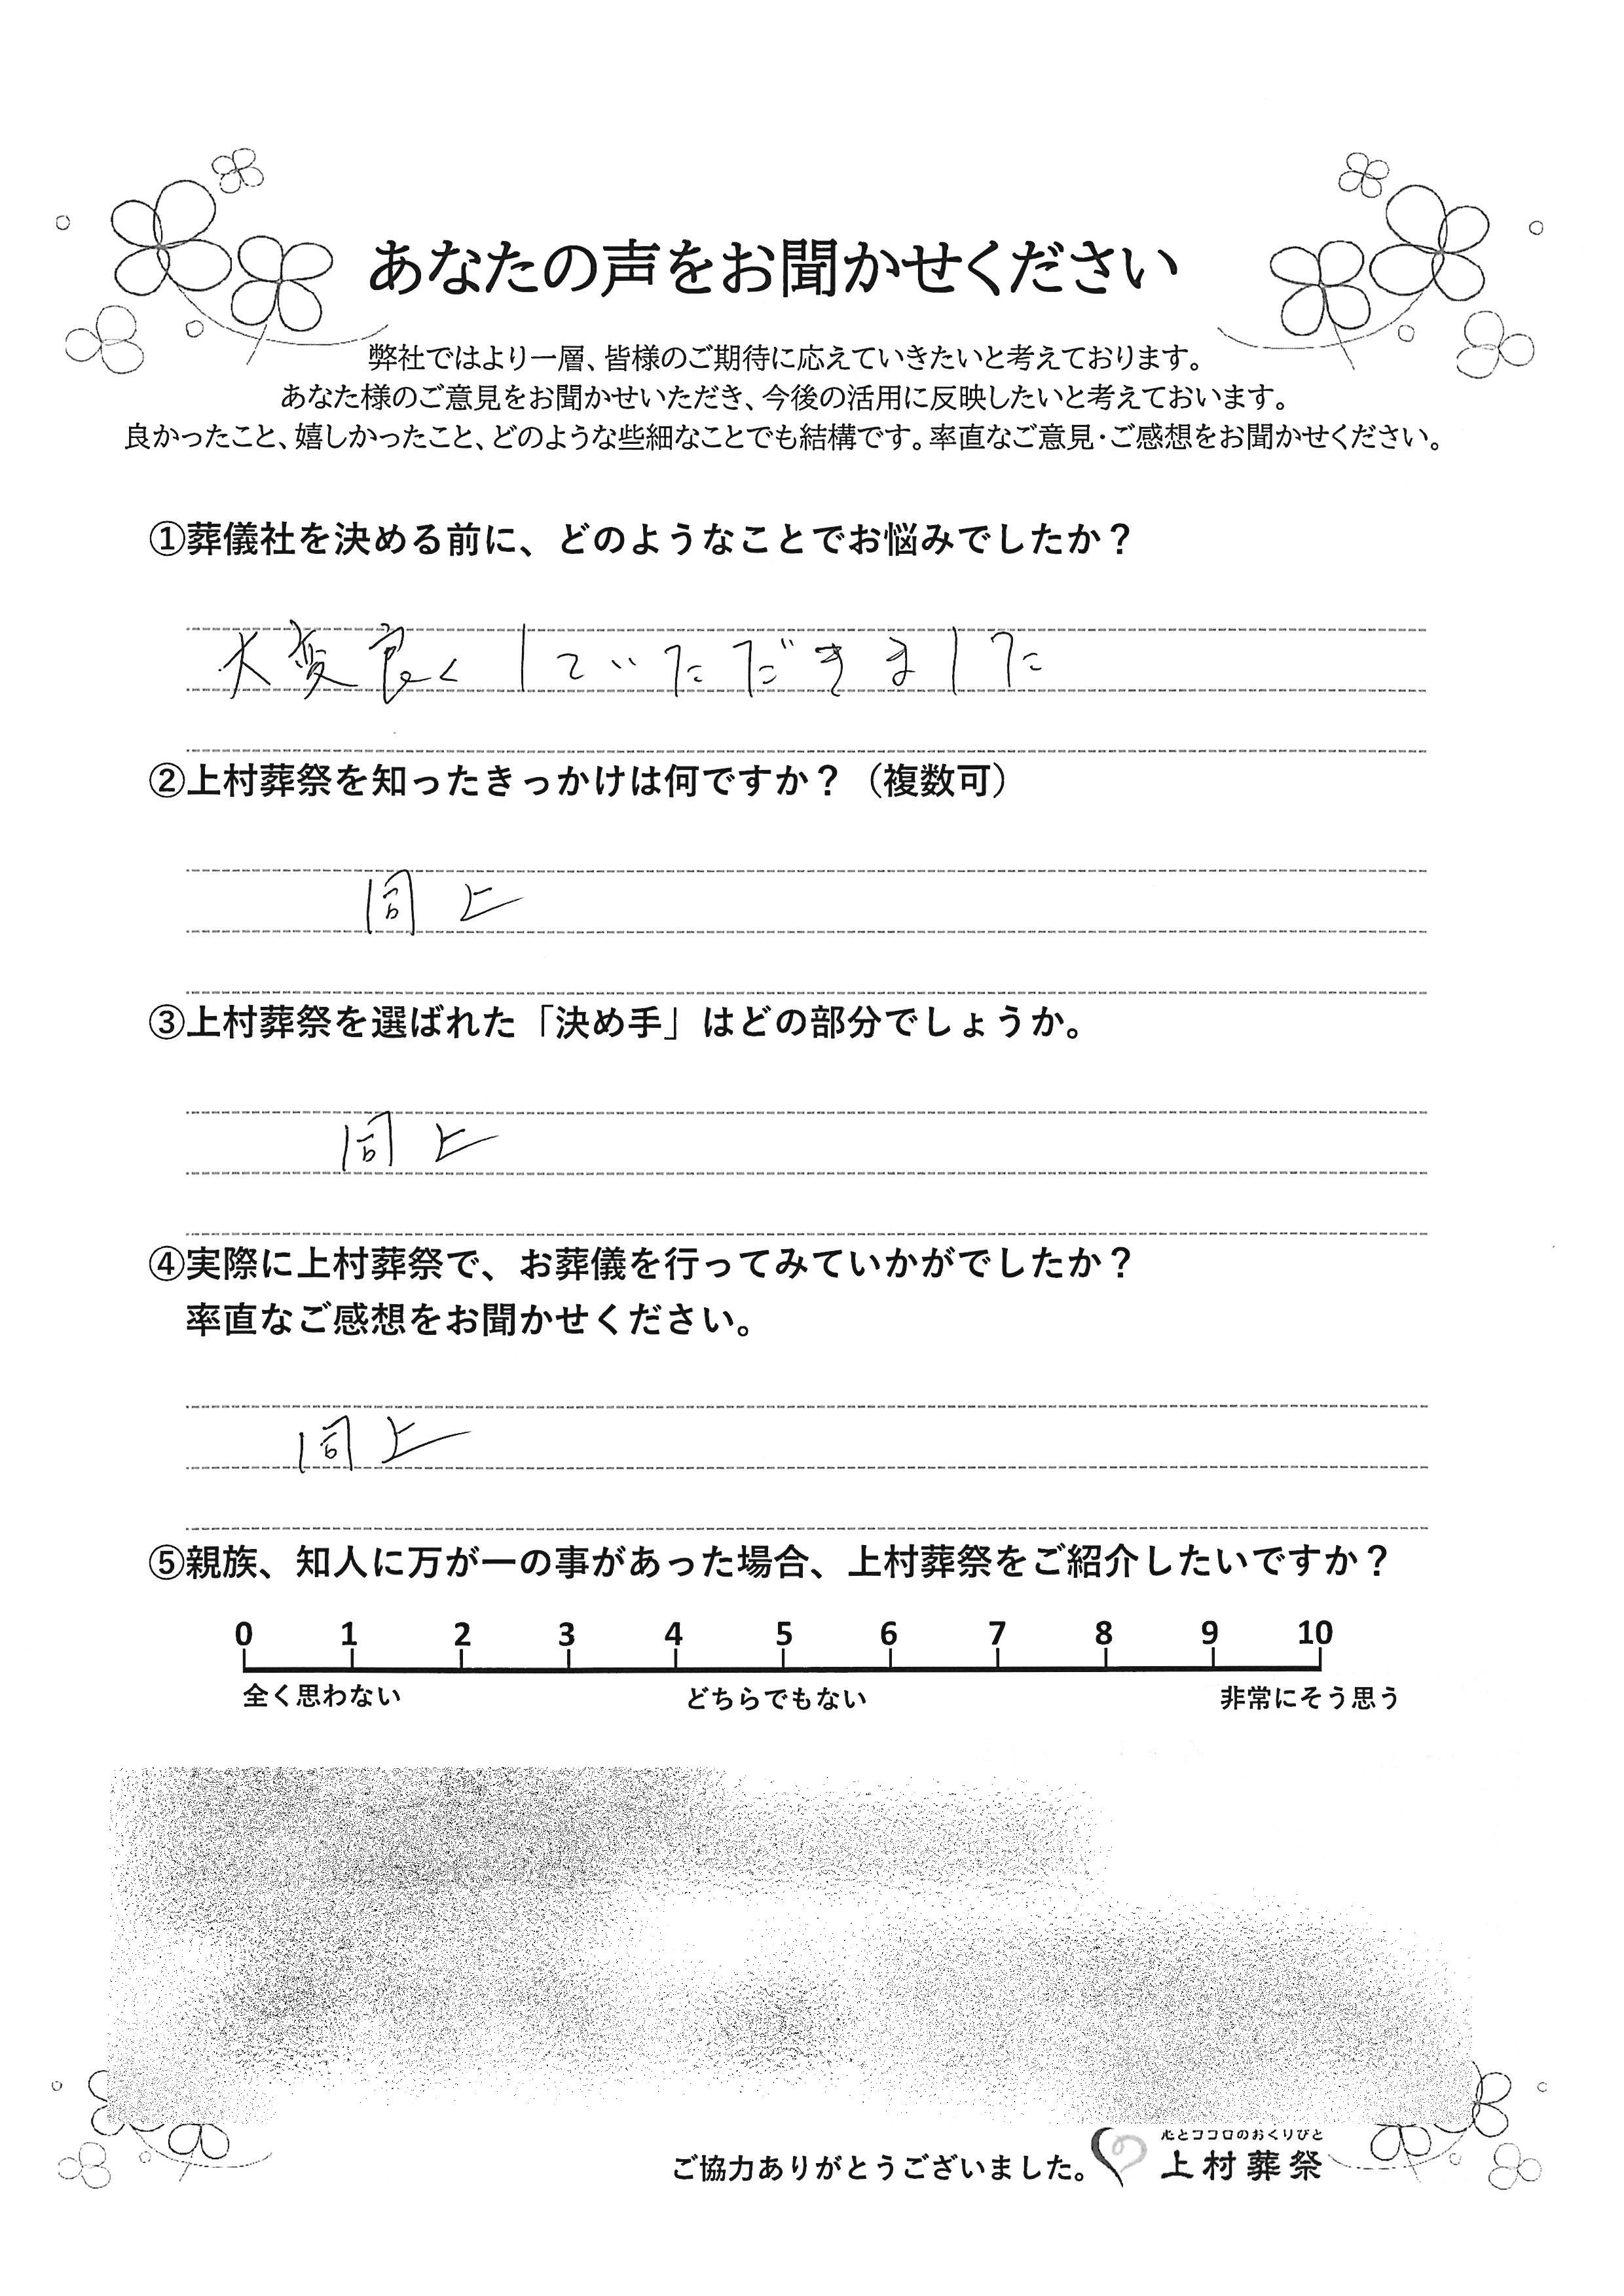 あなたの声をお聞かせください
弊社ではより一層、皆様のご期待に応えていきたいと考えております。
あなた様のご意見をお聞かせいただき、今後の活用に反映したいと考えておいます。
良かったこと、嬉しかったこと、どのような些細なことでも結構です。率直なご意見・ご感想をお聞かせください。
①葬儀社を決める前に、どのようなことでお悩みでしたか？
大変良くしていただきました
②上村葬祭を知ったきっかけは何ですか？（複数可）
同上
③上村葬祭を選ばれた「決め手」はどの部分でしょうか。
同上
④実際に上村葬祭で、お葬儀を行ってみていかがでしたか？
率直なご感想をお聞かせください。
同上
⑤親族、知人に万が一の事があった場合、上村葬祭をご紹介したいですか？
0 1 2 3 4 5 6 7 8 9 10
全く思わない どちらでもない 非常にそう思う
心とココロのおくりびと
ご協力ありがとうございました。 上村葬祭